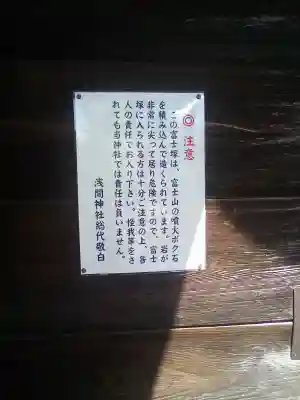 ◎ 注意
この富士塚は、富士山の噴火ボク石
を積み込んで造くられています。岩が
非常に尖って居り危険ですので、富士
塚に入られる方は十分ご注意の上、各
人の責任でお入り下さい。怪我等をさ
れても当神社では責任は負いません。
浅間神社総代敬白